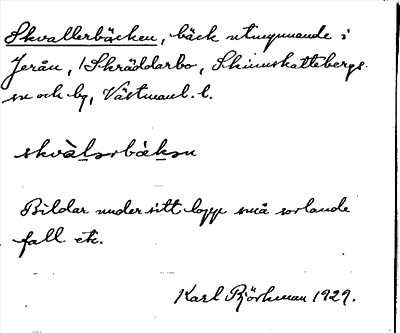 Skvallerbäcken, bäck utmynnande i
Jerån, / Skräddarbo, Skinnskattebergs
sn och bg, Västmanl. l.
skvàlərbäkən
Bildar under sitt lopp små sorlande
fall etc.
Karl Björkman 1929.